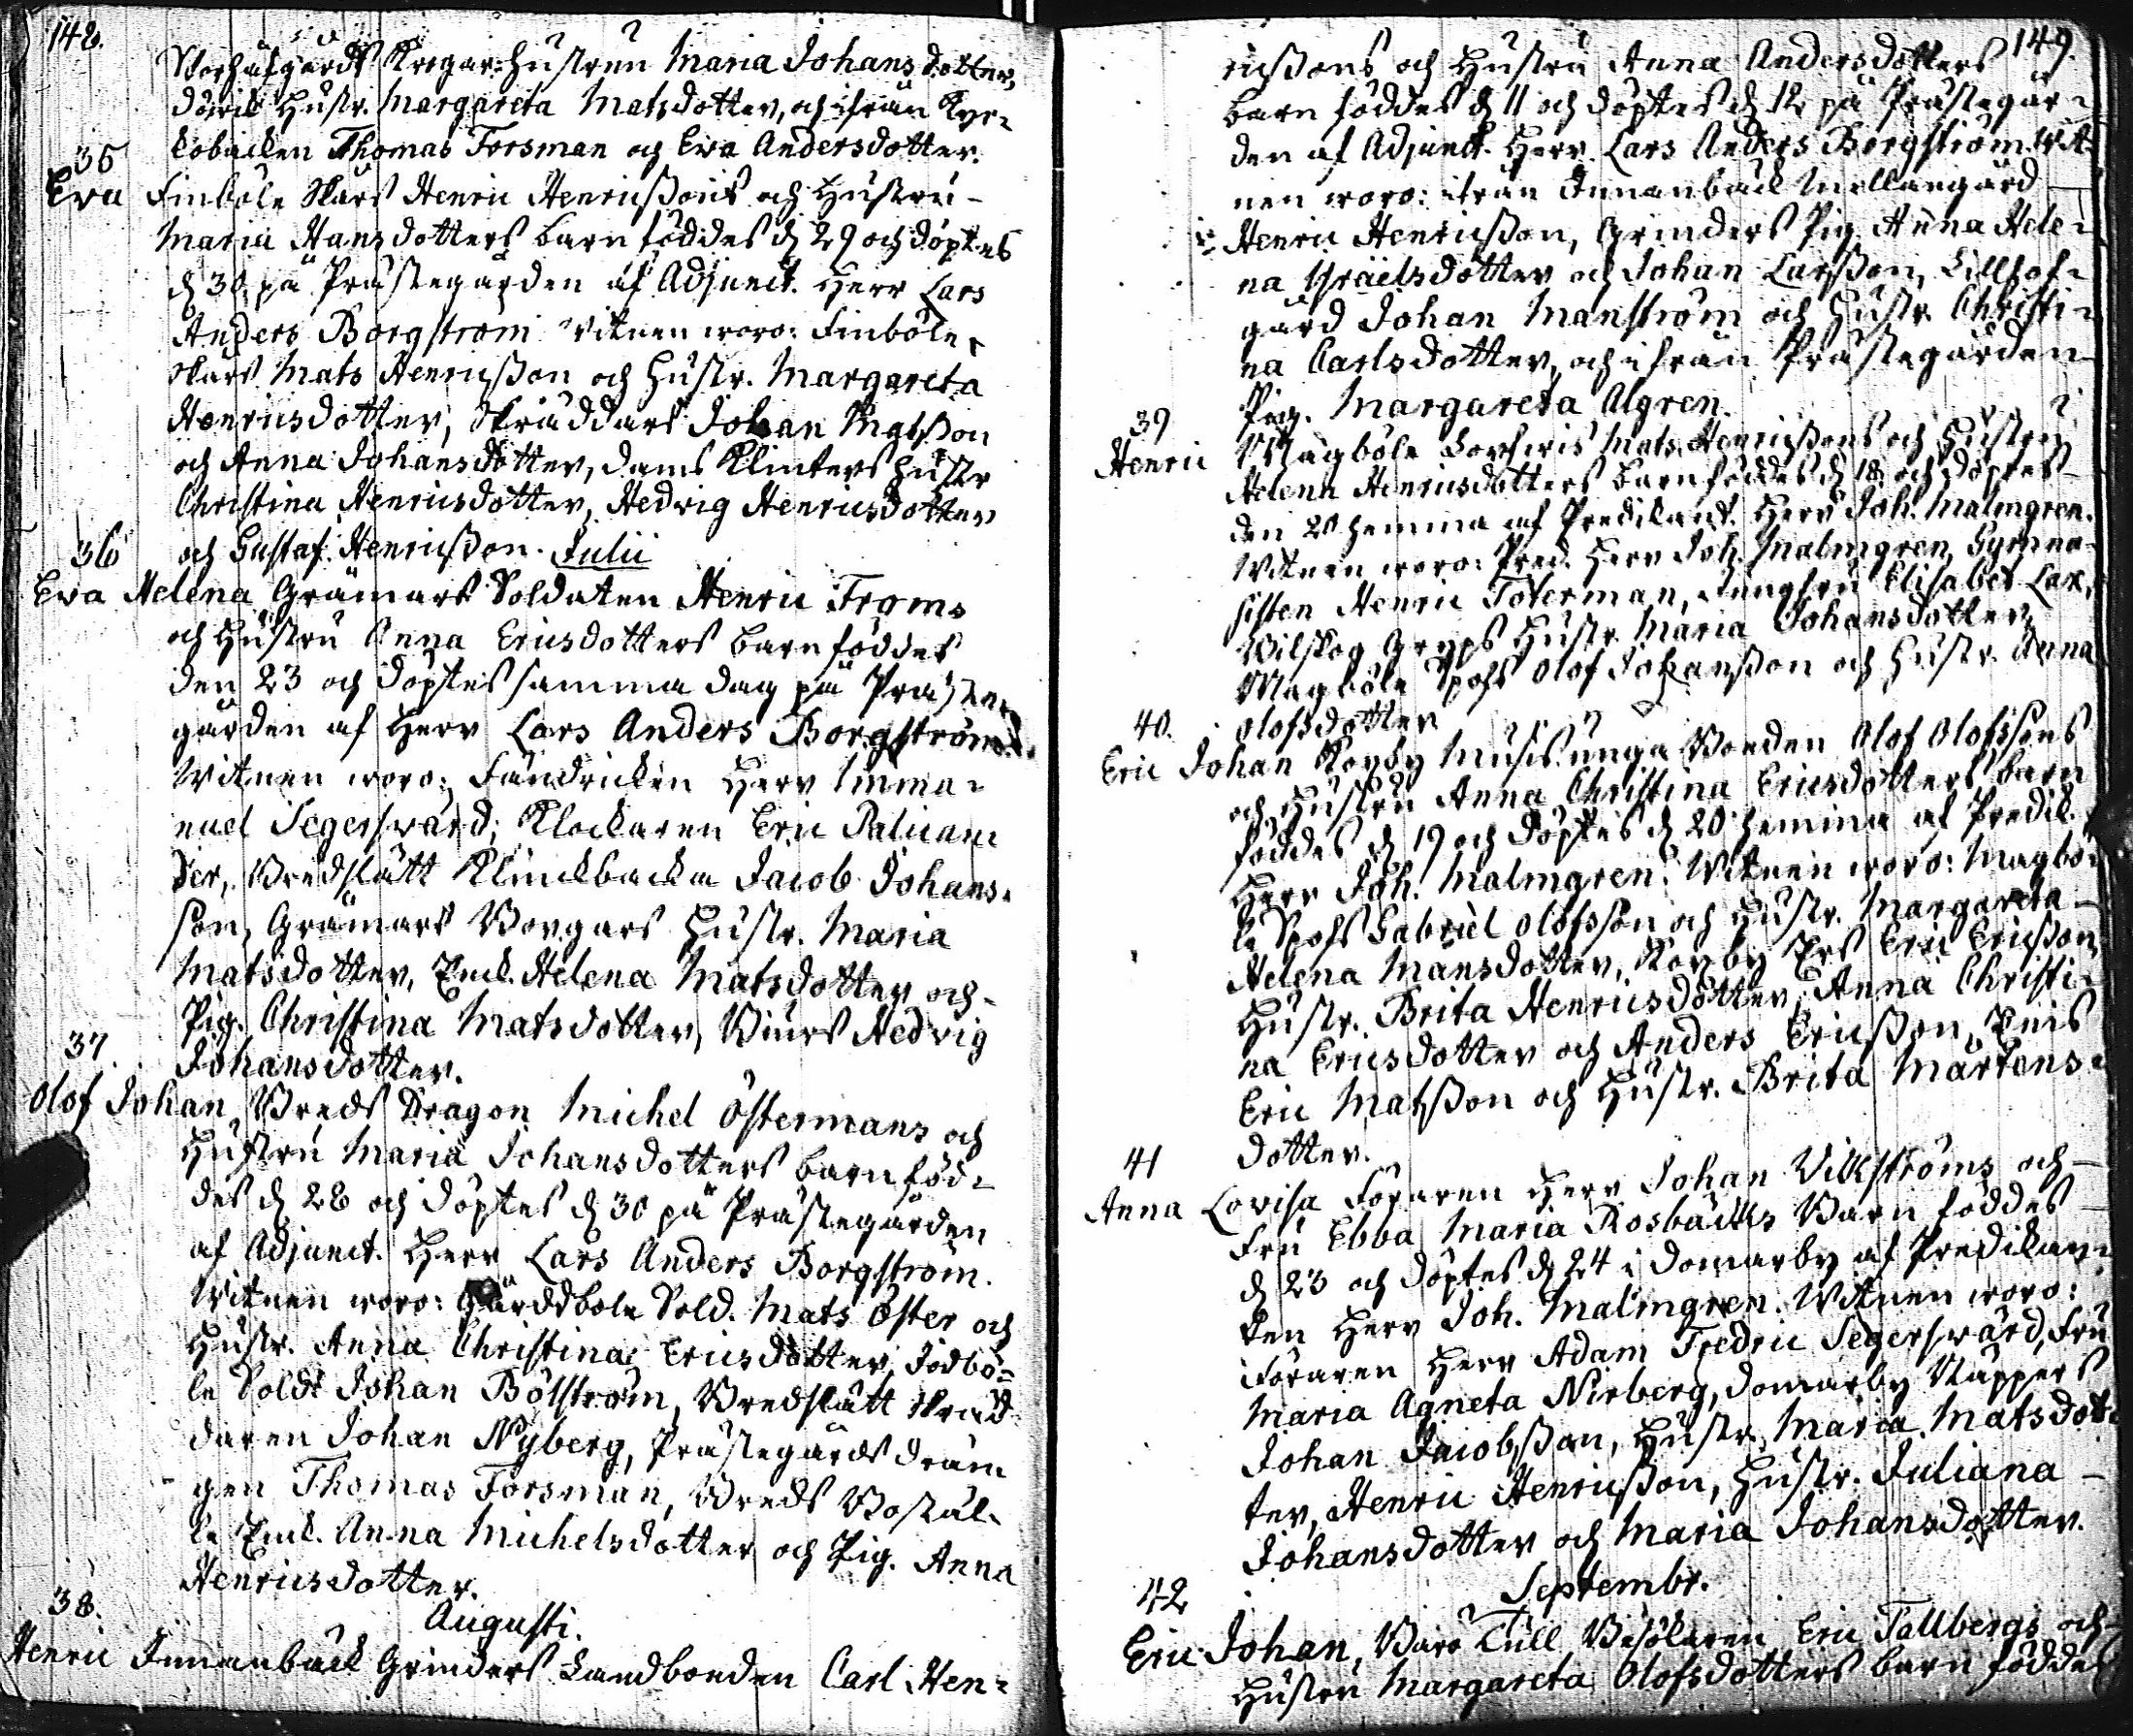 148.
Storhåfgårds Krogar-Hustrun Maria Johansdotter,
Hustr. Margareta Matsdotter, och ifrån Kyr=
kobacken Thomas Forsman och Ewa Andersdotter.
35
Eva Finböle Skars Henric Henricssons och Hustru
Maria Hansdotters barn föddes d 29 och döptes
d 30 på Prästegården af Adjunct. Herr Lars
Anders Borgström Vitnen woro: Finböle
Skars Mats Henricsson och Hustr. Margareta
Henricsdotter, Skräddars Johan Matsson
och Anna Johansdotter, Klinters Hustr
Christina Henricsdotter, Hedvig Henricsdotter
och Gustaf Henricsson. Julii
36
Ewa Helena Gråmars Soldaten Henric Froms
och Hustru Anna Ericsdotters barn föddes
den 23 och döptes samma dag på Präste=
gården af Herr Lars Anders Borgström.
Witnen woro: Fändricken Herr Imma=
nuel Segersvärd, Klockaren Eric Palian=
der, Bredslätt Klinckbacka Jacob Johans=
son, Gråmars Borgars Hustr. Maria
Matsdotter, Enk. Helena Matsdotter och
Pig. Christina Matsdotter, Hedvig
Johansdotter.
37
Olof Johan, Breds Dragon Michel Östermans och
Hustru Maria Johansdotters barn föd=
des d 28 och döptes d 30 på Prästegården
af Adjunct. Herr Lars Anders Borgström.
Witnen woro: Gårddböle Sold. Mats Öster och
Hustr. Anna Christina Ericsdotter, Jodbö=
le Sold. Johan Bölström, Bredslätt Skräd
daren Johan Nyberg, Prästegårds drän
gen Thomas Forsman, Breds Bostäl=
le Enk. Anna Michelsdotter och Pig. Anna
Henricsdotter.
Augusti.
38.
Henric Innanbäck Grinders Landbonden Carl Hen=
149.
ricssons och Hustru Anna Andersdotters
barn föddes d 11 och döptes d 12 på Prästegår=
den af Adjunct. Herr Lars Anders Borgström. Wit
nen woro: ifrån Innanbäck Mellangård
Henric Henricsson, Grinders Pig. Anna Hele=
na Israelsdotter och Johan Larsson, Lillhof=
gård Johan Manström och Hustr. Christi=
na Carlsdotter, och ifrån Prästegården
Pig. Margareta Algren.
39
Henric Magböle Mats Henricssons och Hustru
Helena Henricsdotters barn föddes d 18 och döptes
den 20 hemma af Predikant. Herr Joh. Malmgren.
Witnen woro: Pred. Herr Joh. Malmgren, Gymna=
sisten Henric Toterman, Jungfru Elisabet Lax,
Wilskog Gryps Hustr. Maria Johansdotter,
Magböle Spofs Olof Johansson och Hustr. Anna
Olofsdotter
40.
Eric Johan Korby Musis unga Bonden Olof Olofssons
och Hustru Anna Christina Ericsdotters barn
föddes d 19 och döptes d 20 hemma af Predik.
Herr Joh. Malmgren. Witnen woro: Magbö=
le Spofs Gabriel Olofsson och Hustr. Margareta
Helena Mansdotter, Korby Ers Eric Ericsson
Hustr. Brita Henricsdotter, Anna Christi=
na Ericsdotter och Anders Ericsson,
Eric Matsson och Hustr. Brita Mårtens=
dotter.
41
Anna Lovisa Föraren Herr Johan Vikströms och
Fru Ebba Maria Rosbäcks Barn föddes
d 23 och döptes d 24 i Domarby af Predikan=
ten Herr Joh. Malmgren. Witnen woro:
Föraren Herr Adam Fredric Segersvärd, Fru
Maria Agneta Nirberg, Domarby Näppers
Johan Jacobsson, Hustr. Maria Matsdot
ter, Henric Henricsson, Hustr. Juliana
Johansdotter och Maria Johansdotter.
Septembr.
42
Eric Johan, Barö Tull Besökaren Eric Tallbergs och
Hustru Margareta Olofsdotters barn föddes